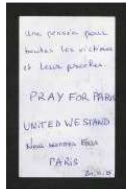 Une pensée pour
toutes les victimes
et leurs proches.
PRAY FOR PARIS
UNITED WE STAND
PARIS